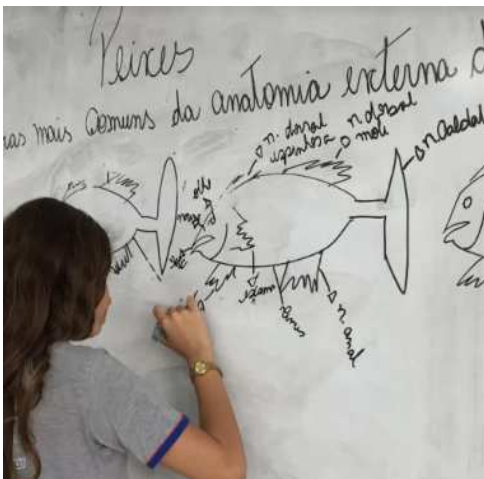 Peixes
ras mais comuns da anatomia externa d
n. dorsal
espinhosa
n. dorsal
mole
n. Caudal
olho
anus
n. anal